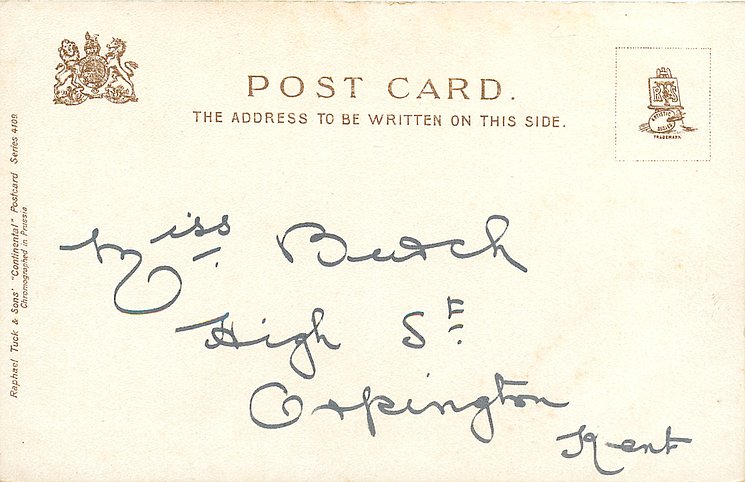 POST CARD.
THE ADDRESS TO BE WRITTEN ON THIS SIDE.
ARTISTIC SERIES
TRADEMARK
Raphael Tuck & Sons' "Continental" Postcard Series 4109.
Chromographed in Prussia
Miss Butch
High St
Orpington
Kent